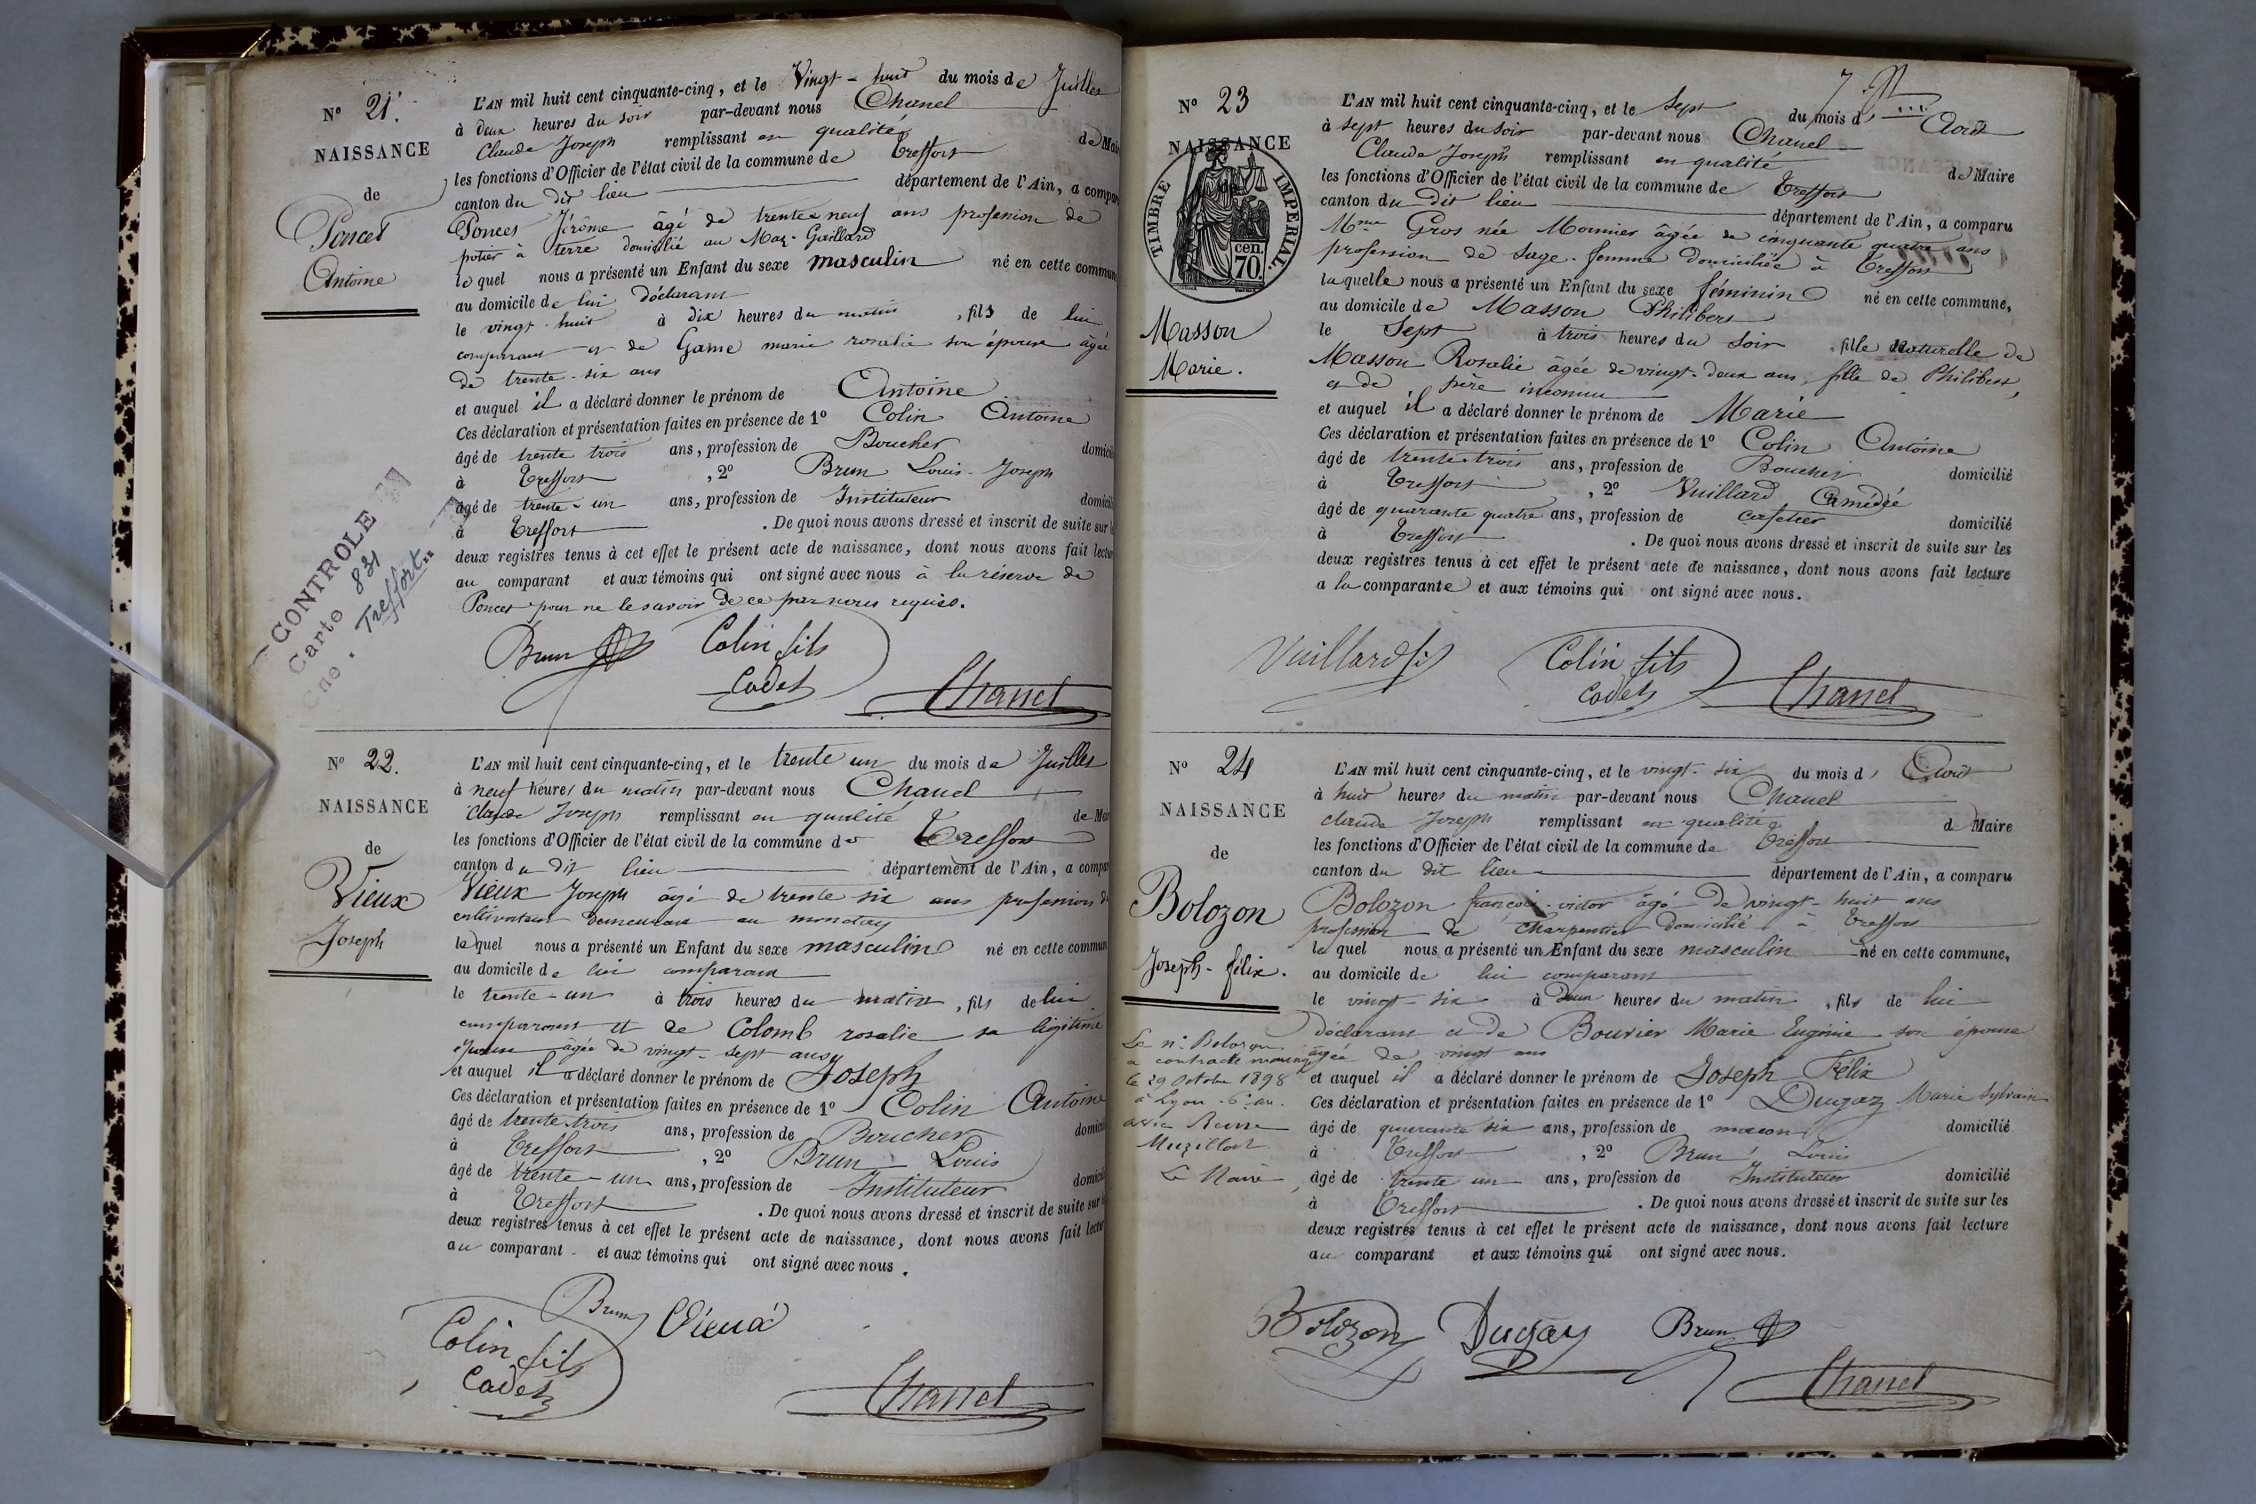 N° 21.
NAISSANCE
de
Poncet
Antoine
L'AN mil huit cent cinquante-cinq, et le Vingt-huit du mois de Juillet
à deux heures du soir par-devant nous Chanel
Claude Joseph remplissant en qualité de Mai
les fonctions d'Officier de l'état civil de la commune de Treffort
canton du dit lieu département de l'Ain, a compar
Poncet Jérôme âgé de trente neuf ans profession de
potier à terre domicilié au Maz-Guillard
lequel nous a présenté un Enfant du sexe masculin né en cette commun
au domicile de lui Déclarant
le vingt-huit à dix heures du matin, fils de lui
comparant et de Game marie rosalie son épouse âgée
de trente-six ans
et auquel il a déclaré donner le prénom de Antoine
Ces déclaration et présentation faites en présence de 1° Colin Antoine
âgé de trente trois ans, profession de Boucher domicili
à Treffort, 2° Brun Louis-Joseph
âgé de trente-un ans, profession de Instituteur domicili
à Treffort. De quoi nous avons dressé et inscrit de suite sur l
deux registres tenus à cet effet le présent acte de naissance, dont nous avons fait lectur
au comparant et aux témoins qui ont signé avec nous à la réserve de
Poncet pour ne le savoir de ce par nous requis.
Brun Colin fils
Cadet
Chanel
CONTROLE
Carte 831
Cne. Treffort
N° 22.
NAISSANCE
de
Vieux
Joseph
L'AN mil huit cent cinquante-cinq, et le trente un du mois de Juillet
à neuf heures du matin par-devant nous Chanel
Claude Joseph remplissant en qualité de Mai
les fonctions d'Officier de l'état civil de la commune de Treffort
canton du dit lieu département de l'Ain, a compar
Vieux Joseph âgé de trente six ans profession de
cultivateur demeurant au monatay
lequel nous a présenté un Enfant du sexe masculin né en cette commun
au domicile de lui comparant
le trente-un à trois heures du matin, fils de lui
comparant et de Colomb rosalie sa légitime
épouse âgée de vingt-sept ans
et auquel il a déclaré donner le prénom de Joseph
Ces déclaration et présentation faites en présence de 1° Colin Antoine
âgé de trente trois ans, profession de Boucher domicili
à Treffort, 2° Brun Louis
âgé de trente-un ans, profession de Instituteur domicili
à Treffort. De quoi nous avons dressé et inscrit de suite sur l
deux registres tenus à cet effet le présent acte de naissance, dont nous avons fait lectur
au comparant et aux témoins qui ont signé avec nous.
Brun Vieux
Colin fils
Cadet
Chanel
N° 23
NAISSANCE
de
TIMBRE IMPERIAL.
cen.
70.
Masson
Marie.
L'AN mil huit cent cinquante-cinq, et le Sept du mois d' Août
à sept heures du soir par-devant nous Chanel
Claude Joseph remplissant en qualité de Maire
les fonctions d'Officier de l'état civil de la commune de Treffort
canton du dit lieu département de l'Ain, a comparu
Mme Gros née Monnier âgée de cinquante quatre ans
profession de Sage-femme domiciliée à Treffort
laquelle nous a présenté un Enfant du sexe féminin né en cette commune,
au domicile de Masson Philibert
le Sept à trois heures du soir, fille naturelle de
Masson Rosalie âgée de vingt-deux ans, fille de Philibert,
et de père inconnu
et auquel il a déclaré donner le prénom de Marie
Ces déclaration et présentation faites en présence de 1° Colin Antoine
âgé de trente-trois ans, profession de Boucher domicilié
à Treffort, 2° Vuillard Amédée
âgé de quarante quatre ans, profession de cafetier domicilié
à Treffort. De quoi nous avons dressé et inscrit de suite sur les
deux registres tenus à cet effet le présent acte de naissance, dont nous avons fait lecture
a la comparante et aux témoins qui ont signé avec nous.
Vuillard Colin fils
Cadet
Chanel
N° 24
NAISSANCE
de
Bolozon
Joseph-félix.
Le n. Bolozon
a contracté mariage
le 29 Octobre 1898
à Lyon 6e arr.
avec
Le Maire
L'AN mil huit cent cinquante-cinq, et le vingt-six du mois d' Août
à huit heures du matin par-devant nous Chanel
claude Joseph remplissant en qualité de Maire
les fonctions d'Officier de l'état civil de la commune de Treffort
canton du dit lieu département de l'Ain, a comparu
Bolozon françois-victor âgé de vingt-huit ans
profession de Charpentier domicilié à Treffort
lequel nous a présenté un Enfant du sexe masculin né en cette commune,
au domicile de lui comparant
le vingt-six à Deux heures du matin, fils de lui
déclarant et de Bouvier Marie Eugénie son épouse
âgée de vingt ans
et auquel il a déclaré donner le prénom de Joseph Félix
Ces déclaration et présentation faites en présence de 1° Dugaz Marie Sylvain
âgé de quarante six ans, profession de maçon domicilié
à Treffort, 2° Brun Louis
âgé de trente un ans, profession de Instituteur domicilié
à Treffort. De quoi nous avons dressé et inscrit de suite sur les
deux registres tenus à cet effet le présent acte de naissance, dont nous avons fait lecture
au comparant et aux témoins qui ont signé avec nous.
Bolozon Dugay Brun
Chanel